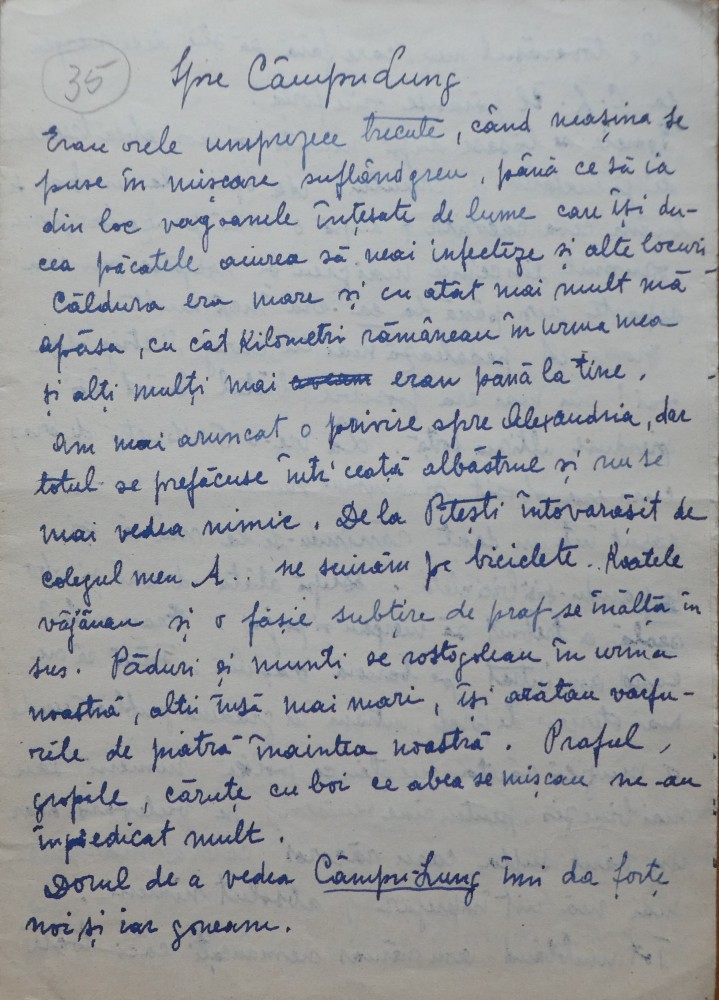 35
Spre Câmpu-Lung
Erau orele unsprezece trecute, când mașina se
puse în mișcare suflând greu, până ce să ia
din loc vagoanele înțesate de lume care își du-
cea păcatele aiurea să mai infecteze și alte locuri
Căldura era mare și cu atât mai mult mă
apăsa, cu cât kilometri rămâneau în urma mea
și alți mulți mai erau până la tine.
Am mai aruncat o privire spre Alexandria, dar
totul se prefăcuse într'ceață albăstrue și nu se
mai vedea nimic. De la Pitești întovarășit de
colegul meu A.. ne suirăm pe biciclete. Roatele
vâjâiau și o fâșie subțire de praf se înălță în
sus. Păduri și munți se rostogoleau în urma
noastră, alții însă mai mari, își arătau vârfu-
rile de piatră înaintea noastră. Praful,
gropile, căruțe cu boi ce abea se mișcau ne-au
împiedicat mult.
Dorul de a vedea Câmpu-Lung îmi da forțe
noi și iar goneam.